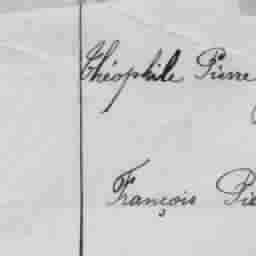 Théophile Pierre
François Pie